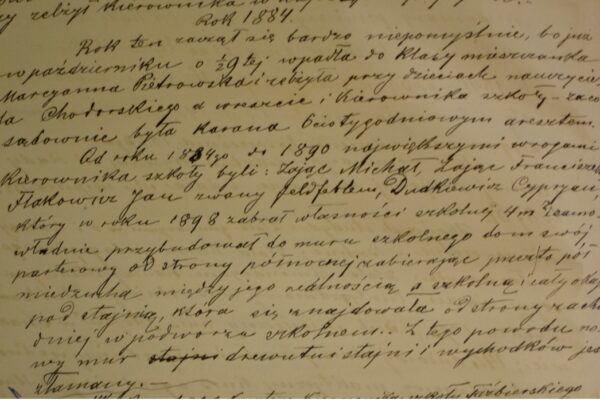 zelżył Kierownika w
Rok 1884.
Rok ten zaczął się bardzo niepomyślnie, bo już
w październiku o ½9tej wpadła do klasy mieszczanka
Maryanna Pietrowska i zelżyła przy dzieciach nauczycie
la Chodorskiego a wreszcie i Kierownika szkoły – za co
sądownie była karana 6cio tygodniowym aresztem.
Od roku 1884go do 1890 największymi wrogami
Kierownika szkoły byli: Zając Michał, Zając Franciszek
Flakowicz Jan zwany feldfeblem, Dudkiewicz Cypryan,
który w roku 1898 zabrał własności szkolnej 4m i samo-
władnie przybudował do muru szkolnego dom swój
parterowy od strony północnej zabierając przez to pół
miedzucha między jego realnością a szkolną i cały okap
pod stajnią, która się znajdowała od strony zacho
dniej w podwórzu szkolnem. Z tego powodu no-
wy mur stajni drewutni stajni i wychodków jest
złamany. –
szkoły